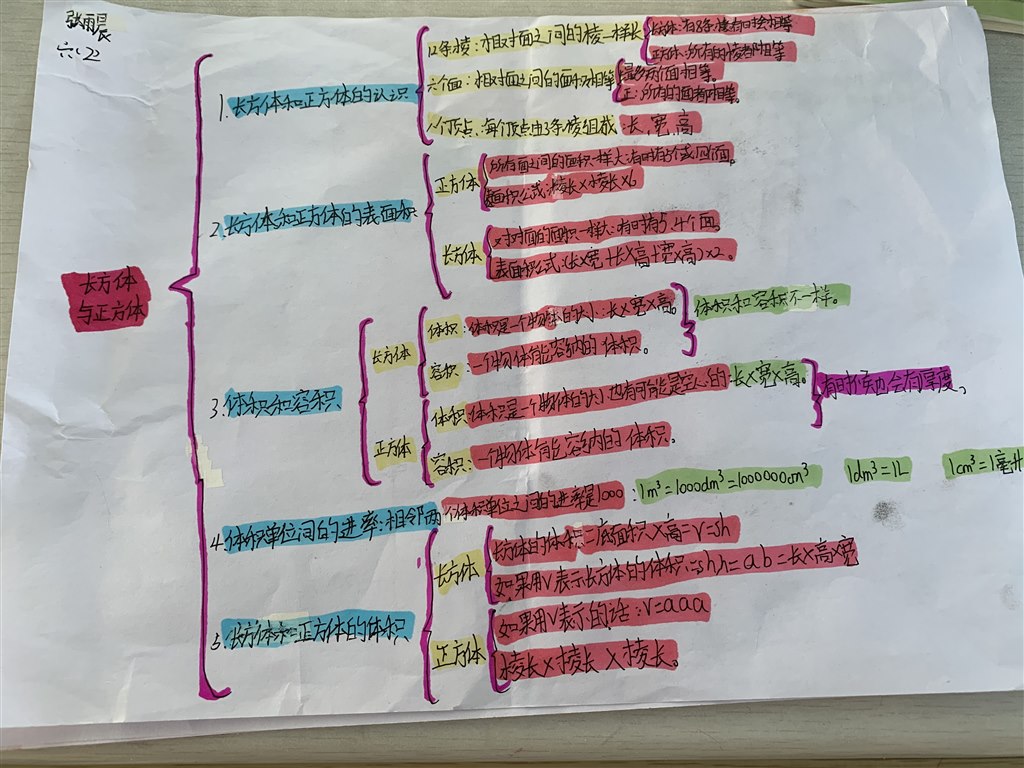 张雨晨
六、22
长方体
与正方体
1.长方体和正方体的认识
12条棱:相对面之间的棱一样长
正方体:所有的棱都相等
六个面:相对面之间的面积相等
最多两个面相等。
正:所有的面都相等。
八个顶点:每个顶点由3条棱组成:长,宽,高
2.长方体和正方体的表面积
正方体
所有面之间的面积一样大:有时有5个或4个面。
面积公式:棱长×棱长×6
长方体
对对面的面积一样大:有时有5.4个面。
表面积公式:(长×宽+长×高+宽×高)×2。
3.体积和容积
长方体
体积:体积是一个物体的大小:长×宽×高。
容积:一个物体能容纳的体积。
体积和容积不一样。
正方体
体积 体积是一个物体的大小 也有可能是空心的 长×宽×高。
容积:一个物体能容纳的体积。
有时候也会有厚度。
4.体积单位间的进率:相邻两个体积单位之间的进率是1000:1m³=1000dm³=1000000cm³ 1dm³=1L 1cm³=1毫升
5.长方体和正方体的体积
长方体
长方体的体积=底面积×高=V=sh
如果用V表示长方体的体积=sh,h=ab=长×高×宽
正方体
如果用V表示的话:V=aaa
棱长×棱长×棱长。